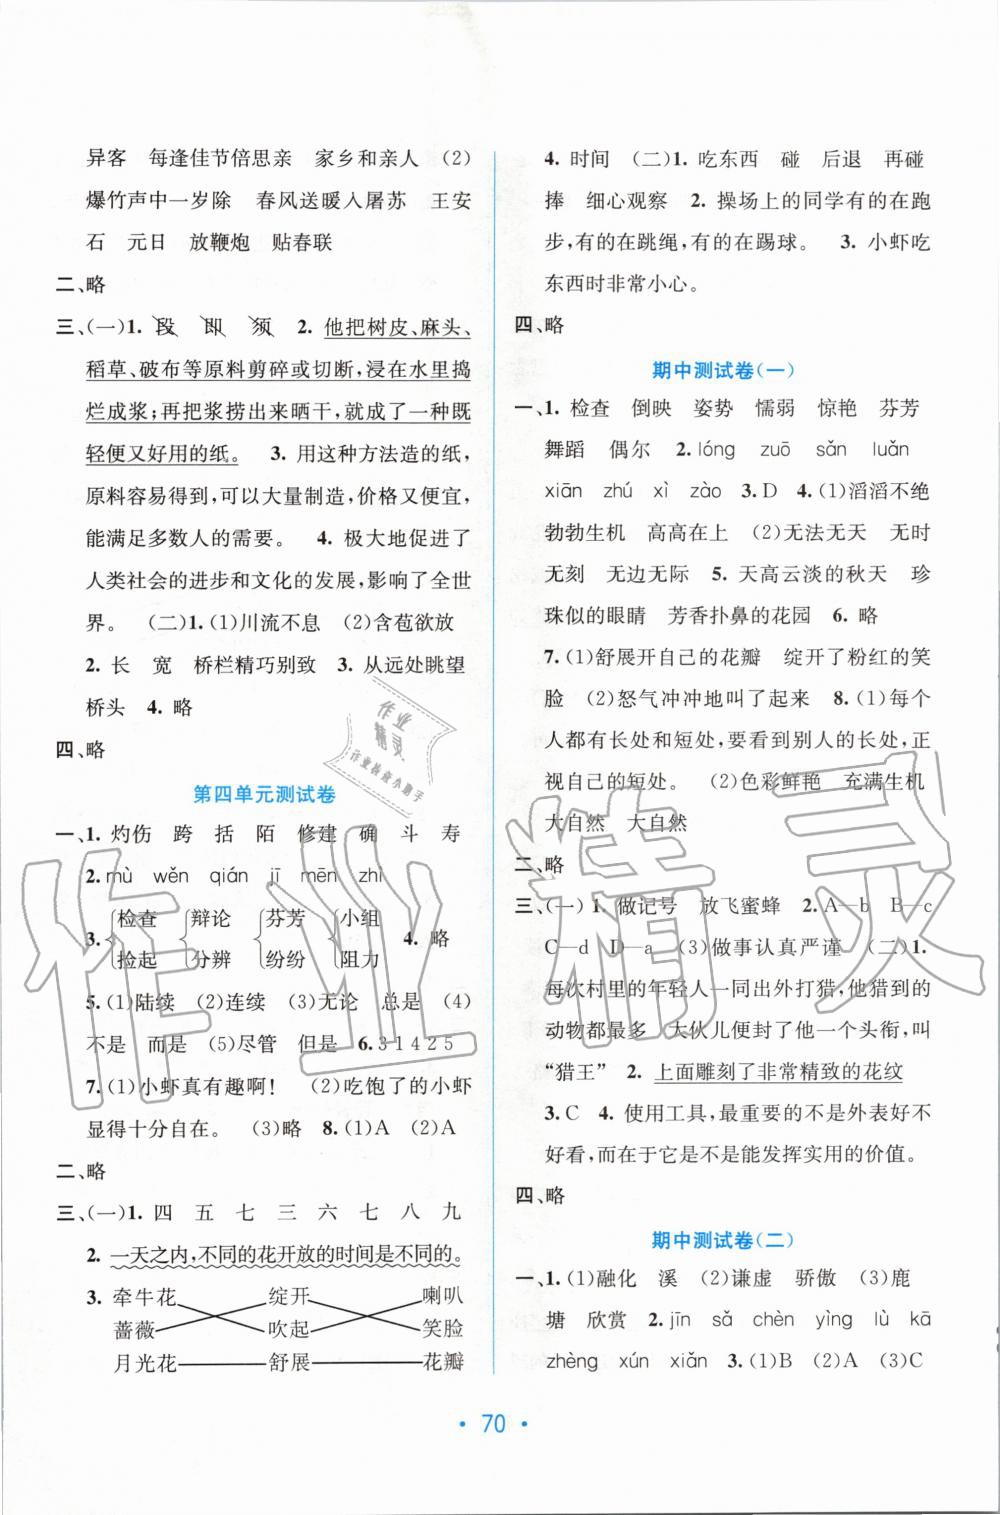 异客　每逢佳节倍思亲　家乡和亲人　(2)
爆竹声中一岁除　春风送暖入屠苏　王安
石　元日　放鞭炮　贴春联
二、略
三、(一)1. 段　即　须　2. 他把树皮、麻头、
稻草、破布等原料剪碎或切断,浸在水里捣
烂成浆;再把浆捞出来晒干,就成了一种既
轻便又好用的纸。　3. 用这种方法造的纸,
原料容易得到,可以大量制造,价格又便宜,
能满足多数人的需要。　4. 极大地促进了
人类社会的进步和文化的发展,影响了全世
界。　(二)1.(1)川流不息　(2)含苞欲放
2. 长　宽　桥栏精巧别致　3. 从远处眺望
桥头　4. 略
四、略
第四单元测试卷
一、1. 灼伤　跨　括　陌　修建　确　斗　寿
2. mù　wěn　qián　jī　mēn　zhì
3. {检查 捡起　{辩论 分辨　{芬芳 纷纷　{小组 阻力　4. 略
5.(1)陆续　(2)连续　(3)无论　总是　(4)
不是　而是　(5)尽管　但是　6. 3 1 4 2 5
7.(1)小虾真有趣啊!　(2)吃饱了的小虾
显得十分自在。　(3)略　8.(1)A　(2)A
二、略
三、(一)1. 四　五　七　三　六　七　八　九
2. 一天之内,不同的花开放的时间是不同的。
3. 牵牛花　绽开　喇叭
蔷薇　吹起　笑脸
月光花　舒展　花瓣
4. 时间　(二)1. 吃东西　碰　后退　再碰
捧　细心观察　2. 操场上的同学有的在跑
步,有的在跳绳,有的在踢球。　3. 小虾吃
东西时非常小心。
四、略
期中测试卷(一)
一、1. 检查　倒映　姿势　懦弱　惊艳　芬芳
舞蹈　偶尔　2. lóng　zuō　sǎn　luǎn
xiān　zhú　xì　zào　3. D　4.(1)滔滔不绝
勃勃生机　高高在上　(2)无法无天　无时
无刻　无边无际　5. 天高云淡的秋天　珍
珠似的眼睛　芳香扑鼻的花园　6. 略
7.(1)舒展开自己的花瓣　绽开了粉红的笑
脸　(2)怒气冲冲地叫了起来　8.(1)每个
人都有长处和短处,要看到别人的长处,正
视自己的短处。　(2)色彩鲜艳　充满生机
大自然　大自然
二、略
三、(一)1. 做记号　放飞蜜蜂　2. A—b　B—c
C—d　D—a　(3)做事认真严谨　(二)1.
每次村里的年轻人一同出外打猎,他猎到的
动物都最多　大伙儿便封了他一个头衔,叫
“猎王”　2. 上面雕刻了非常精致的花纹
3. C　4. 使用工具,最重要的不是外表好不
好看,而在于它是不是能发挥实用的价值。
四、略
期中测试卷(二)
一、1.(1)融化　溪　(2)谦虚　骄傲　(3)鹿
塘　欣赏　2. jīn　sǎ　chèn　yìng　lù　kā
zhèng　xún　xiǎn　3.(1)B　(2)A　(3)C
· 70 ·
作业精灵
作业
精灵
作业检查小助手